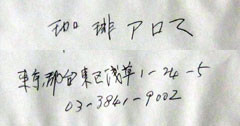 珈琲アロマ
東京都台東区浅草1-24-5
03-3841-9002